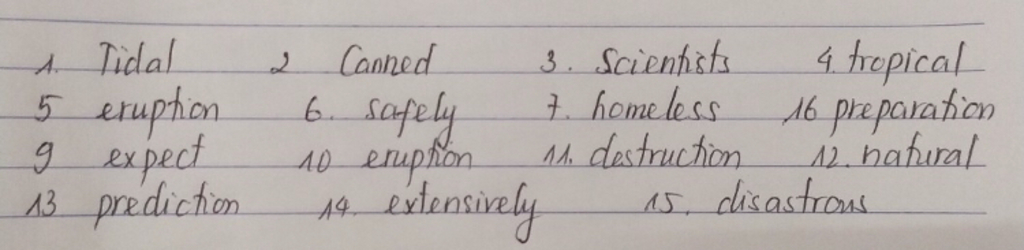 1. Tidal 2 Canned 3. Scientists 4. tropical
5 eruption 6. safely 7. homeless 16 preparation
9 expect 10 eruption 11. destruction 12. natural
13 prediction 14. extensively 15. disastrous